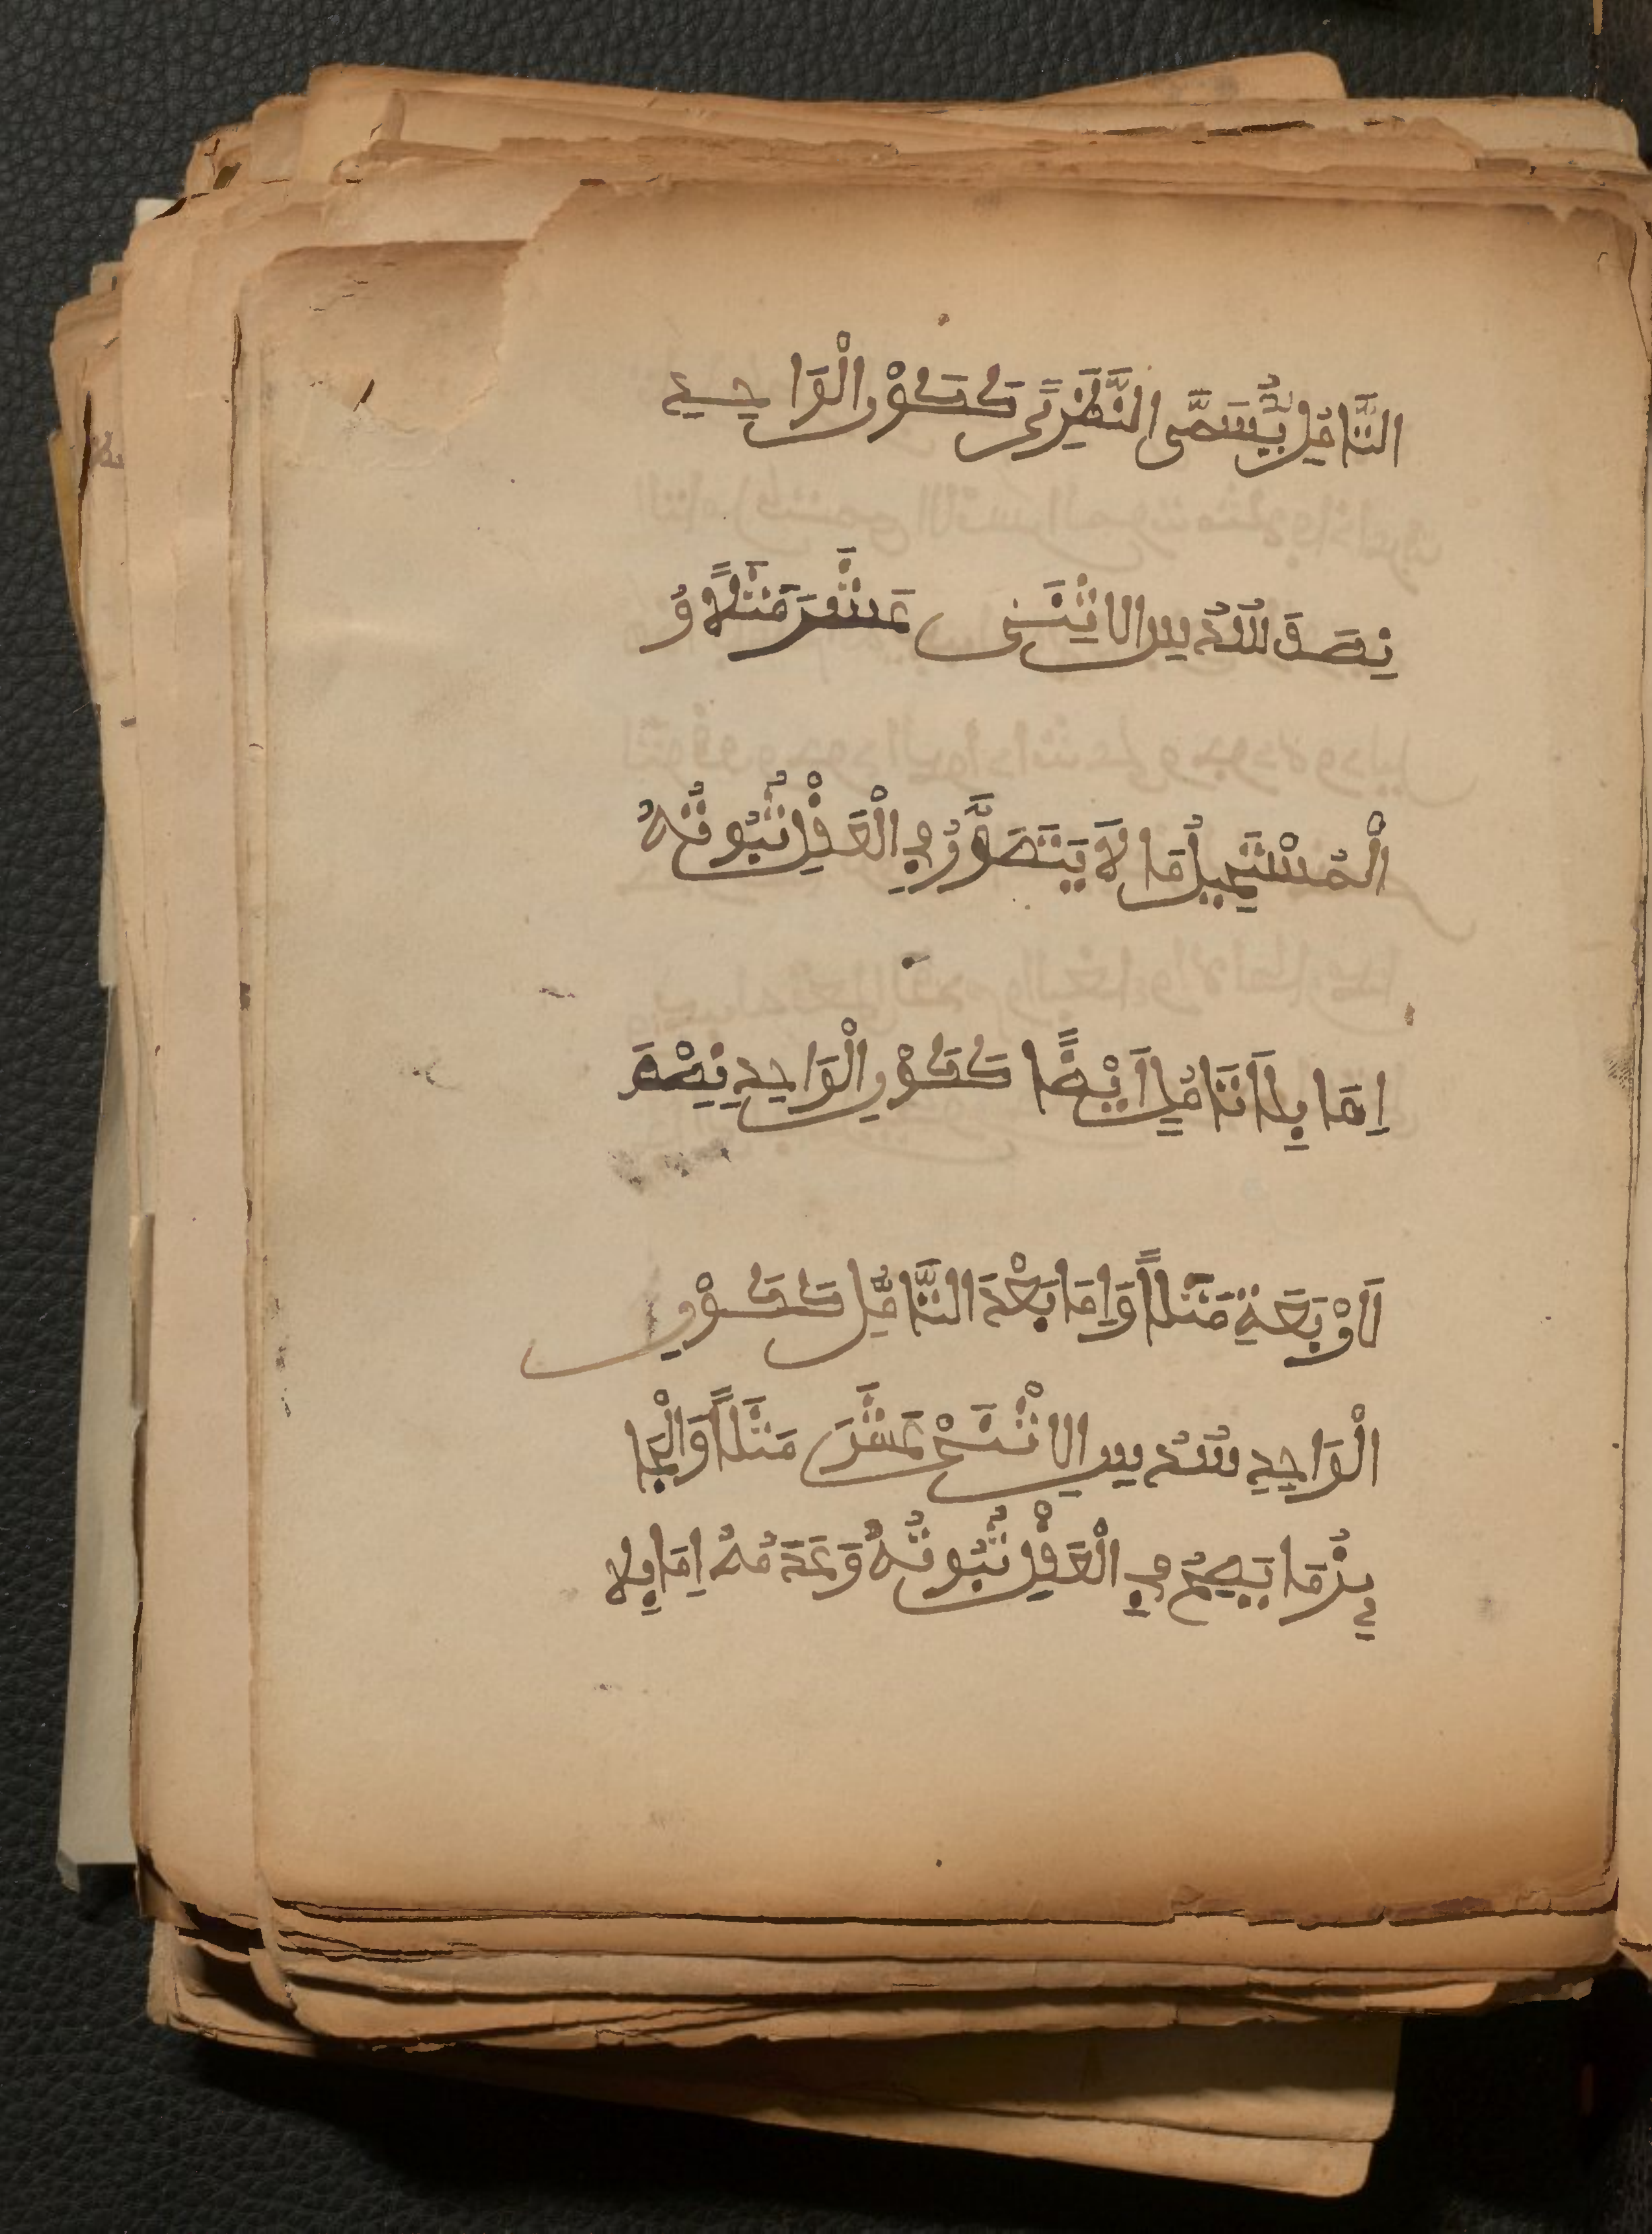 التَّأَمُّلِ يُسَمَّى النَّظَرِيَّ كَكَوْنِ الْوَاحِدِ
نِصْفَ سُدُسِ الِاثْنَيْ عَشَرَ مَثَلًا وَ
الْمُسْتَحِيلُ مَا لَا يَتَصَوَّرُ فِي الْعَقْلِ ثُبُوتُهُ
اِمَّا بِلَا تَأَمُّلٍ اَيْضًا كَكَوْنِ الْوَاحِدِ نِصْفَ
لَارْبَعَةِ مَثَلًا وَاِمَّا بَعْدَ التَّأَمُّلِ كَكَوْنِ
الْوَاحِدِ سُدُسِ الِاثْنَيْ عَشَرَ مَثَلًا وَالْجَا
يِزُ مَا يَصِحُّ فِي الْعَقْلِ ثُبُوتُهُ وَعَدَمُهُ اِمَّا بِلَا